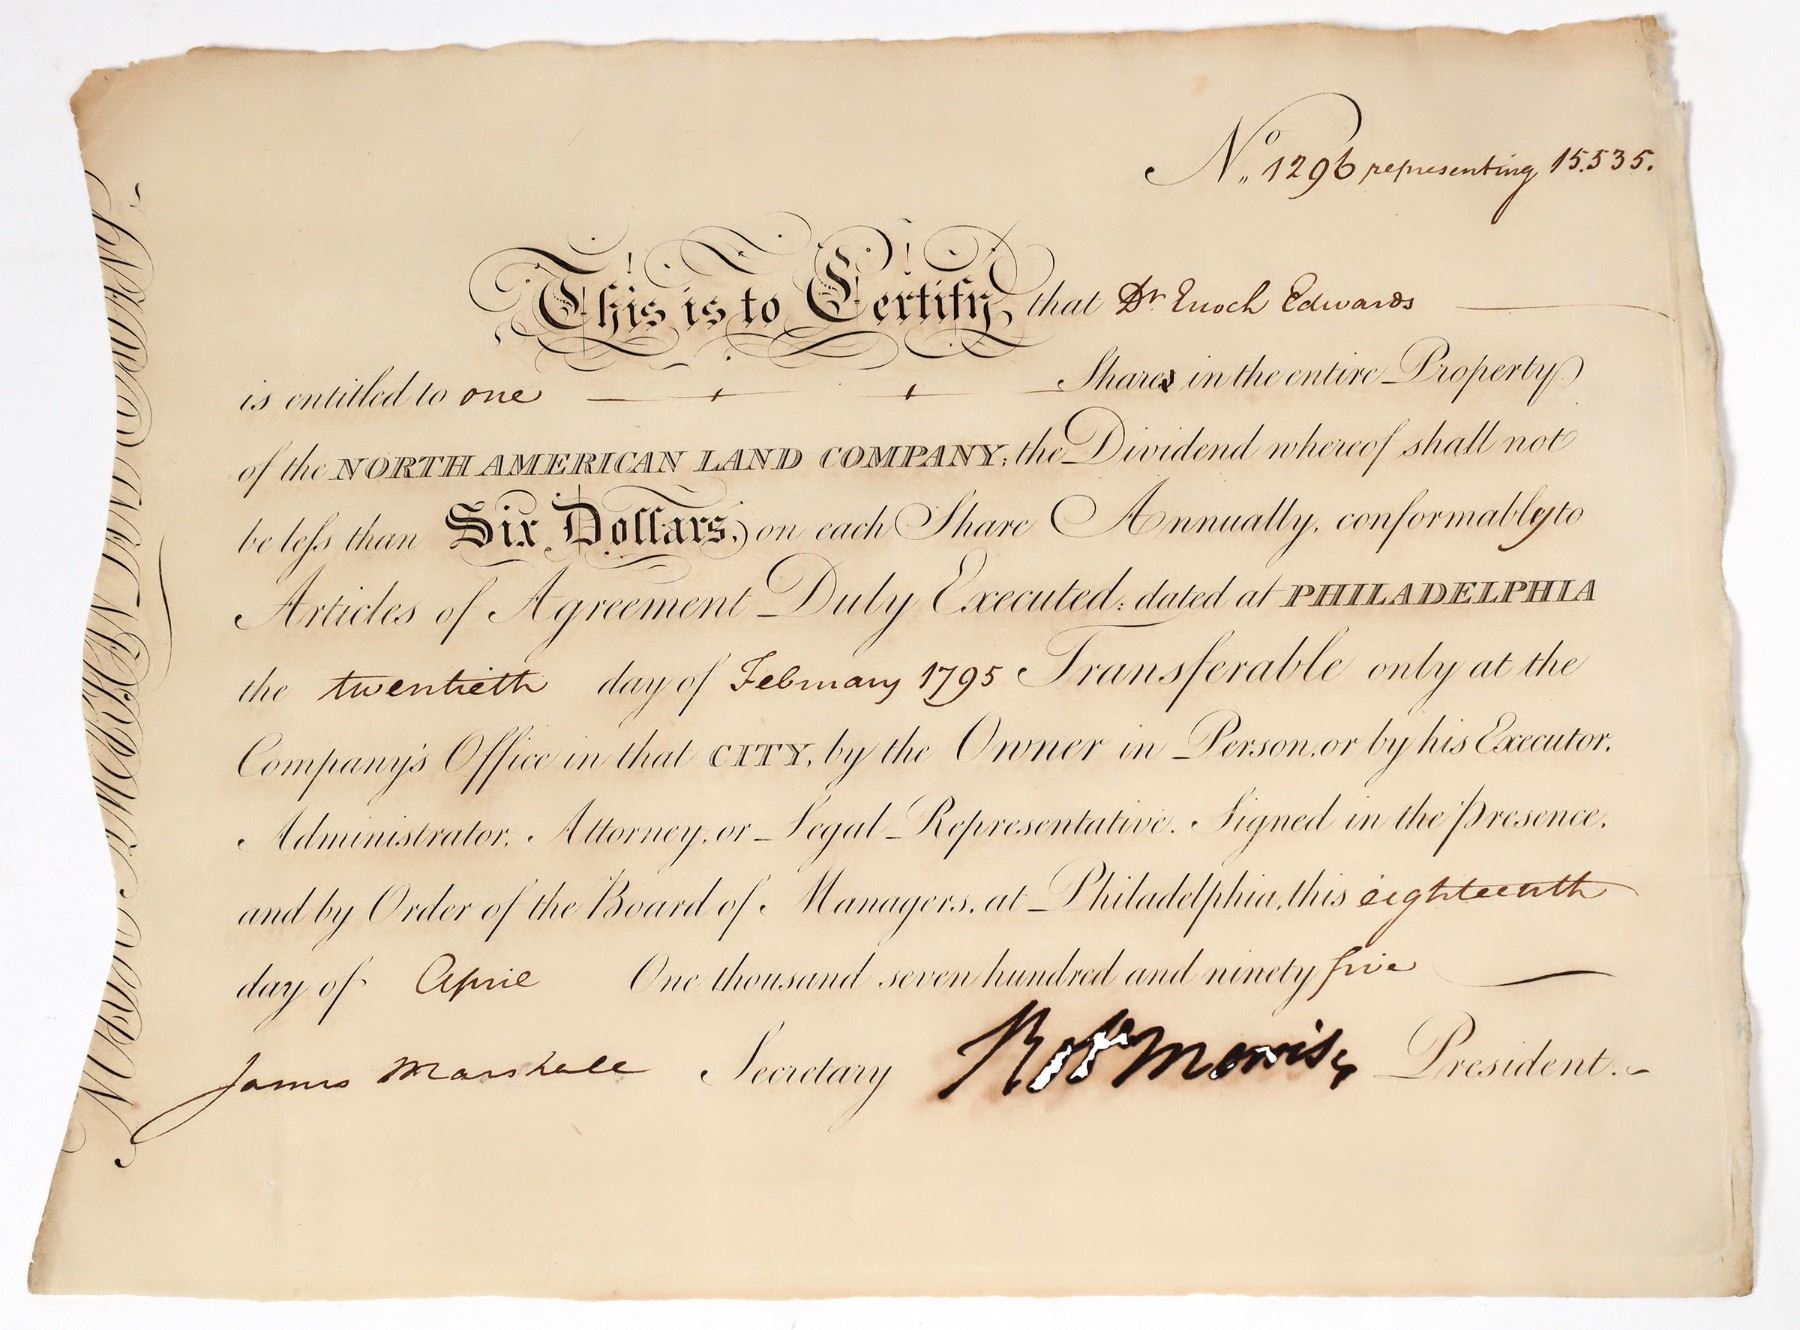 No. 1296 representing 15.535.
This is to Certify, that Dr Enoch Edwards
is entitled to one Shares in the entire Property
of the NORTH AMERICAN LAND COMPANY; the Dividend whereof shall not
be leſs than Six Dollars, on each Share Annually, conformably to
Articles of Agreement Duly Executed: dated at PHILADELPHIA
the twentieth day of February 1795 Transferable only at the
Company's Office in that CITY, by the Owner in Person, or by his Executor,
Administrator, Attorney, or Legal Representative. Signed in the presence,
and by Order of the Board of Managers, at Philadelphia, this eighteenth
day of April One thousand seven hundred and ninety five
James Marshall Secretary Robt Morris President.